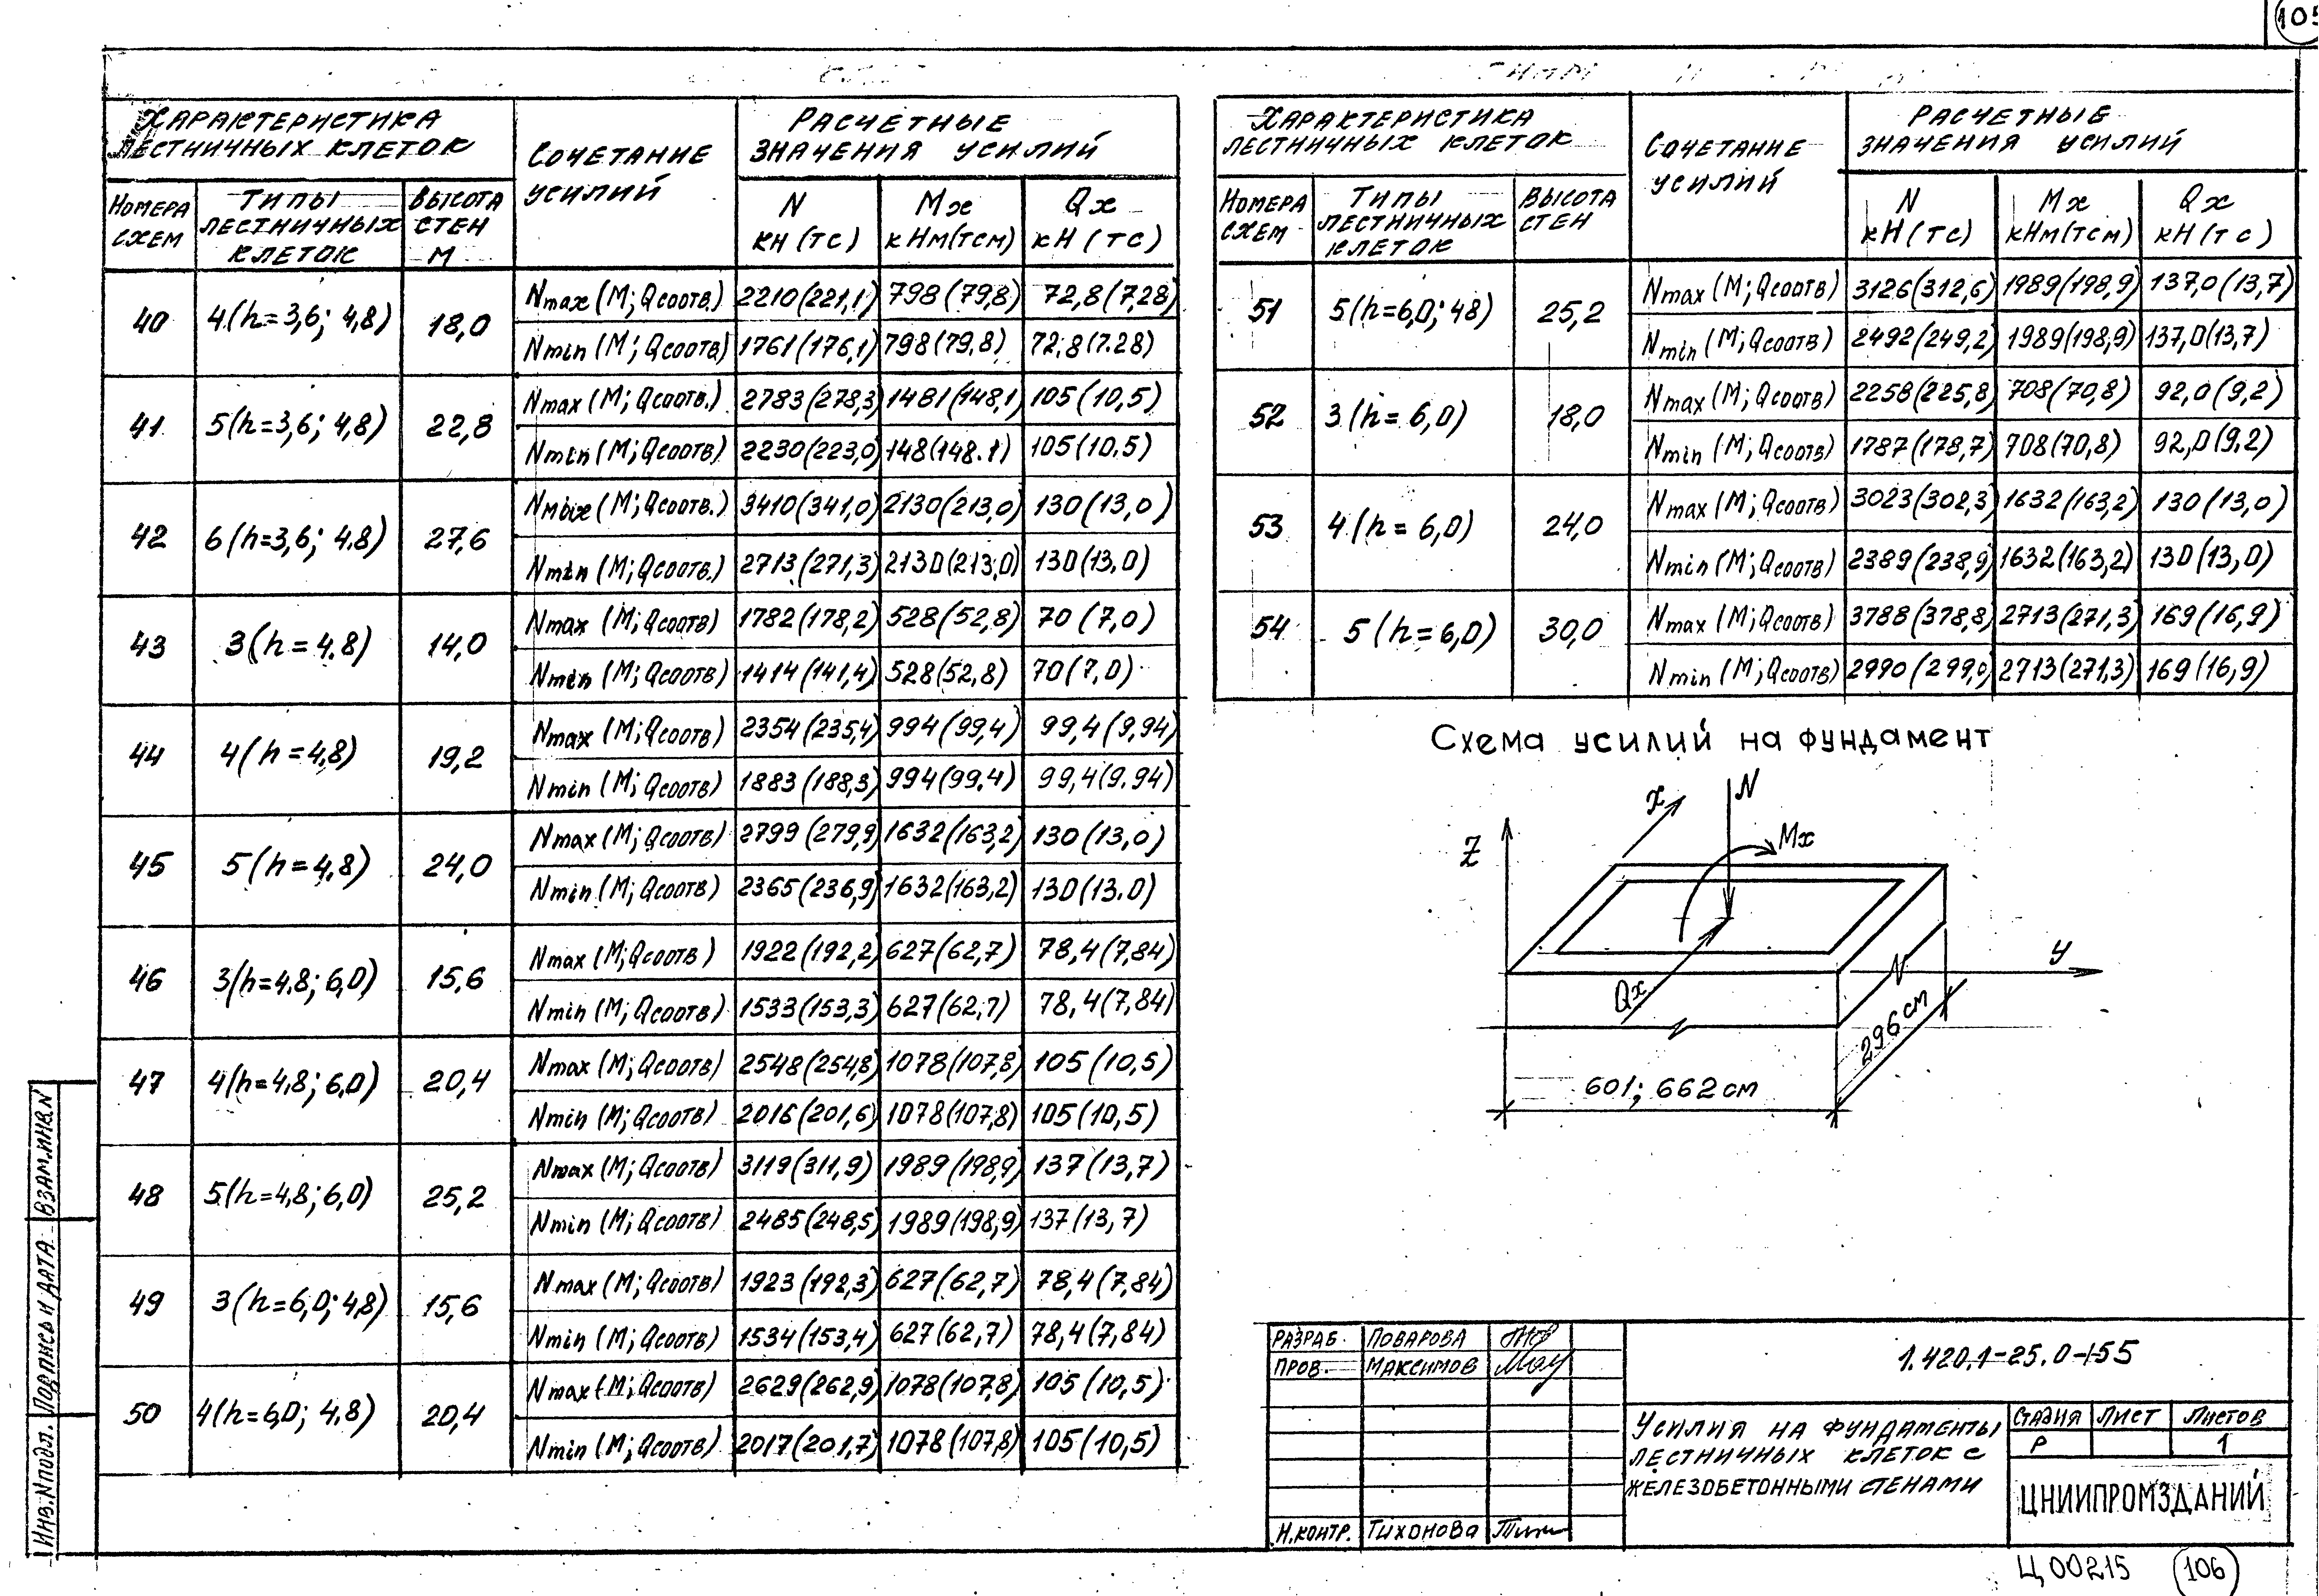 105
Характеристика лестничных клеток | Сочетание усилий | Расчетные значения усилий
Номера схем | Типы лестничных клеток | Высота стен м | N кН (тс) | Mx кНм (тсм) | Qx кН (тс)
40 | 4 (h=3,6; 4,8) | 18,0 | Nmax (M; Qсоотв.) | 2210 (221,1) | 798 (79,8) | 72,8 (7,28)
Nmin (M; Qсоотв) | 1761 (176,1) | 798 (79,8) | 72,8 (7.28)
41 | 5 (h=3,6; 4,8) | 22,8 | Nmax (M; Qсоотв.) | 2783 (278,3) | 1481 (148,1) | 105 (10,5)
Nmin (M; Qсоотв) | 2230 (223,0) | 148 (148.1) | 105 (10,5)
42 | 6 (h=3,6; 4,8) | 27,6 | Nмах (M; Qсоотв.) | 3410 (341,0) | 2130 (213,0) | 130 (13,0)
Nmin (M; Qсоотв.) | 2713 (271,3) | 2130 (213,0) | 130 (13,0)
43 | 3 (h=4,8) | 14,0 | Nmax (M; Qсоотв) | 1782 (178,2) | 528 (52,8) | 70 (7,0)
Nmin (M; Qсоотв) | 1414 (141,4) | 528 (52,8) | 70 (7,0)
44 | 4 (h=4,8) | 19,2 | Nmax (M; Qсоотв) | 2354 (235,4) | 994 (99,4) | 99,4 (9,94)
Nmin (M; Qсоотв) | 1883 (188,3) | 994 (99,4) | 99,4 (9.94)
45 | 5 (h=4,8) | 24,0 | Nmax (M; Qсоотв) | 2799 (279,9) | 1632 (163,2) | 130 (13,0)
Nmin (M; Qсоотв) | 2365 (236,9) | 1632 (163,2) | 130 (13.0)
46 | 3 (h=4,8; 6,0) | 15,6 | Nmax (M; Qсоотв) | 1922 (192,2) | 627 (62,7) | 78,4 (7,84)
Nmin (M; Qсоотв) | 1533 (153,3) | 627 (62,7) | 78,4 (7,84)
47 | 4 (h=4,8; 6,0) | 20,4 | Nmax (M; Qсоотв) | 2548 (254,8) | 1078 (107,8) | 105 (10,5)
Nmin (M; Qсоотв) | 2016 (201,6) | 1078 (107,8) | 105 (10,5)
48 | 5 (h=4,8; 6,0) | 25,2 | Nmax (M; Qсоотв) | 3119 (311,9) | 1989 (198,9) | 137 (13,7)
Nmin (M; Qсоотв) | 2485 (248,5) | 1989 (198,9) | 137 (13,7)
49 | 3 (h=6,0; 4,8) | 15,6 | Nmax (M; Qсоотв) | 1923 (192,3) | 627 (62,7) | 78,4 (7,84)
Nmin (M; Qсоотв) | 1534 (153,4) | 627 (62,7) | 78,4 (7,84)
50 | 4 (h=6,0; 4,8) | 20,4 | Nmax (M; Qсоотв) | 2629 (262,9) | 1078 (107,8) | 105 (10,5)
Nmin (M; Qсоотв) | 2017 (201,7) | 1078 (107,8) | 105 (10,5)
Характеристика лестничных клеток | Сочетание усилий | Расчетные значения усилий
Номера схем | Типы лестничных клеток | Высота стен | N кН (тс) | Mx кНм (тсм) | Qx кН (тс)
51 | 5 (h=6,0; 48) | 25,2 | Nmax (M; Qсоотв) | 3126 (312,6) | 1989 (198,9) | 137,0 (13,7)
Nmin (M; Qсоотв) | 2492 (249,2) | 1989 (198,9) | 137,0 (13,7)
52 | 3 (h=6,0) | 18,0 | Nmax (M; Qсоотв) | 2258 (225,8) | 708 (70,8) | 92,0 (9,2)
Nmin (M; Qсоотв) | 1787 (178,7) | 708 (70,8) | 92,0 (9,2)
53 | 4 (h=6,0) | 24,0 | Nmax (M; Qсоотв) | 3023 (302,3) | 1632 (163,2) | 130 (13,0)
Nmin (M; Qсоотв) | 2389 (238,9) | 1632 (163,2) | 130 (13,0)
54 | 5 (h=6,0) | 30,0 | Nmax (M; Qсоотв) | 3788 (378,8) | 2713 (271,3) | 169 (16,9)
Nmin (M; Qсоотв) | 2990 (299,0) | 2713 (271,3) | 169 (16,9)
Схема усилий на фундамент
x
N
Z
Mx
y
Qx
296 см
601; 662 см
Разраб. Поварова
Пров. Максимов
Н.контр. Тихонова
1.420.1-25.0-1-55
Усилия на фундаменты
лестничных клеток с
железобетонными стенами
Стадия Лист Листов
Р 1
ЦНИИПРОМЗДАНИЙ
Ц00215 106
Инв.Nподл. Подпись и дата Взам.инв.N